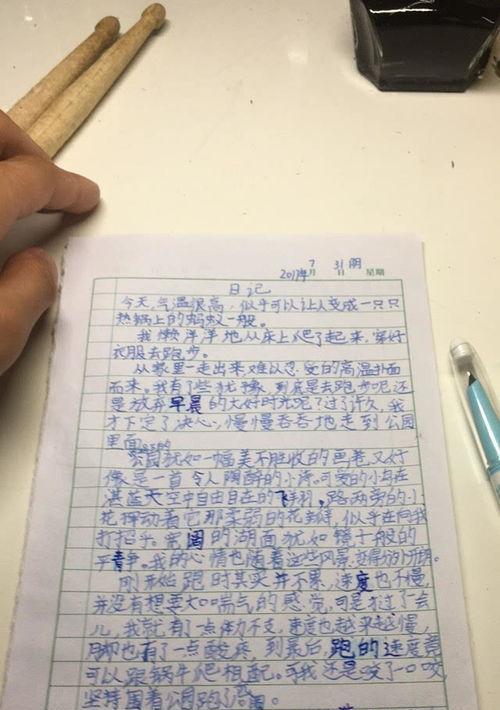 2017年7月31日 星期 阴
日记
今天,气温很高,似乎可以让人变成一只只
热锅上的蚂蚁一般。
我懒洋洋地从床上爬了起来,穿好
衣服去跑步。
从家里一走出来难以忍受的高温扑面
而来。我有了些犹豫,到底是去跑步呢还
是放弃早晨的大好时光呢?过了许久,我
才下定了决心,慢慢吞吞地走到公园
里面
公园犹如一幅美不胜收的画卷,又好
像是一首令人陶醉的小诗。可爱的小鸟在
湛蓝天空中自由自在的飞翔。路边旁的小
花挥动着它那柔弱的花瓣,似乎在向我
打招乎。宽阔的湖面犹如镜子般的
平静。我的心情也随着这些风景,变得分外开朗。
刚开始跑时其实并不累,速度也不慢,
并没有想要大口喘气的感觉,可是才过了一会
儿,我就有了一点体力不支,速度也越来越慢,
脚也有了一点酸疼,到最后,跑的速度竟
可以跟蜗牛爬相配。可我还是咬了一口咬
坚持围着公园跑了